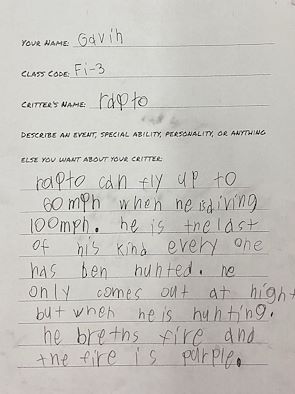 YOUR NAME: Gavin
CLASS CODE: Fi-3
CRITTER'S NAME: rapto
DESCRIBE AN EVENT, SPECIAL ABILITY, PERSONALITY, OR ANYTHING
ELSE YOU WANT ABOUT YOUR CRITTER:
rapto can fly up to
60 mph when he is diving
100mph. he is the last
of his kind every one
has ben hunted. he
only comes out at night
but when he is hunting.
he breths fire and
the fire is purple.